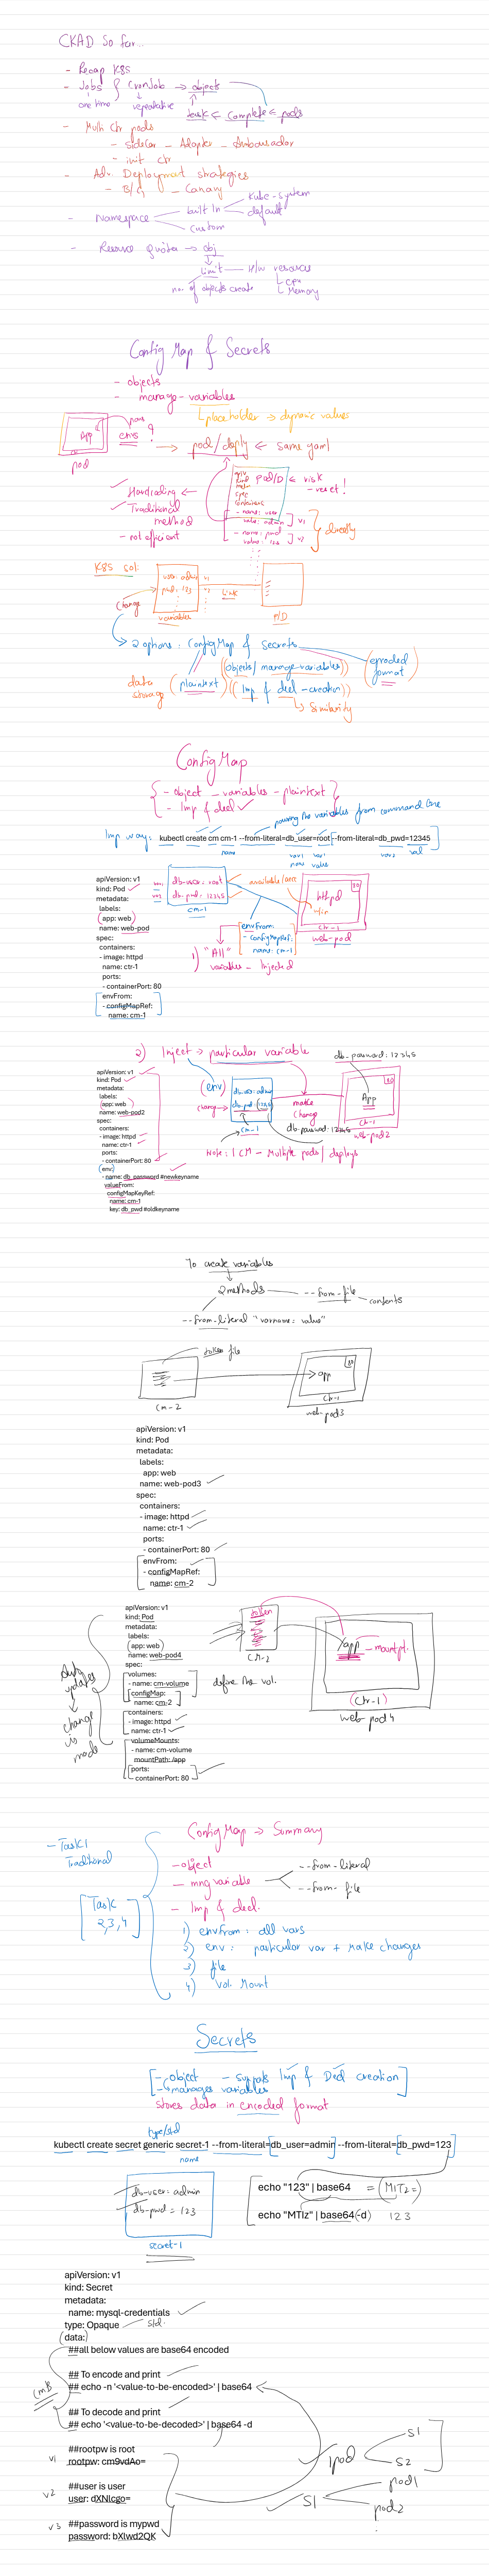 CKAD So far...
- Recap K8S
- Jobs } CronJob → objects
one time repeatative task ← Complete ← pods
- Multi Ctr pods
- Sidecar - Adapter - Ambassador
- init ctr
- Adv. Deployment strategies
- B/G - Canary
- Namespace
built In
Kube-system
default
custom
- Resource Quotas → obj
limit - H/w resources
no. of objects create
CPU
Memory
Config Map & Secrets
- objects
- manage - variables
placeholder → dynamic values
App
pod
→ pod/deply ← same yaml
Hardcoding ←
Traditional
method
- not efficient
pod/D ← risk
- reset!
spec
container
- name: user
value: admin
v1
- name: pwd
value: 123
v2
directly
K8S sol:
user: admin v1
pwd: 123
change
variables
Link
P/D
→ 2 options: ConfigMap & Secrets
(objects/manage-variables)
(encoded
format)
data
storage
(plaintext)
(Imp & decl-creation)
↳ Similarity
ConfigMap
- object - variables - plaintext
- Imp & decl ✓
passing the variables from command line
Imp way: kubectl create cm cm-1 --from-literal=db_user=root --from-literal=db_pwd=12345
name
var1 var1
name value
var2 val
apiVersion: v1
kind: Pod
metadata:
labels:
app: web
name: web-pod
spec:
containers:
- image: httpd
name: ctr-1
ports:
- containerPort: 80
envFrom:
- configMapRef:
name: cm-1
db-user: root
db-pwd: 12345
cm-1
available/are
80
httpd
ctr-1
web-pod
envFrom:
- configMapRef:
name: cm-1
1) "All"
variables - Injected
2) Inject → particular variable
db-password: 12345
apiVersion: v1
kind: Pod
metadata:
labels:
app: web
name: web-pod2
spec:
containers:
- image: httpd
name: ctr-1
ports:
- containerPort: 80
env:
- name: db_password #newkeyname
valueFrom:
configMapKeyRef:
name: cm-1
key: db_pwd #oldkeyname
(env)
change →
db-user: admin
db-pwd: 12345
cm-1
make
change
db-password: 12345
80
App
ctr-1
web-pod2
Note: 1 CM - Multiple pods/deploys
To create variables
2 methods
--from-file
contents
--from-literal "varname: value"
token file
cm-2
80
app
ctr-1
web-pod3
apiVersion: v1
kind: Pod
metadata:
labels:
app: web
name: web-pod3
spec:
containers:
- image: httpd
name: ctr-1
ports:
- containerPort: 80
envFrom:
- configMapRef:
name: cm-2
apiVersion: v1
kind: Pod
metadata:
labels:
app: web
name: web-pod4
spec:
volumes:
- name: cm-volume
configMap:
name: cm-2
containers:
- image: httpd
name: ctr-1
volumeMounts:
- name: cm-volume
mountPath: /app
ports:
- containerPort: 80
Auto
updates
change
is
made
token
cm-2
define the vol.
/app - mountpt.
(ctr-1)
web-pod4
ConfigMap → Summary
- Task1
Traditional
[Task
2,3,4]
- object
- mng variable
--from-literal
--from-file
- Imp & decl.
1) envFrom: all vars
2) env: particular var + make changes
3) file
4) Vol. Mount
Secrets
- object - supports Imp & Decl creation
- manages variables
stores data in encoded format
type/std
kubectl create secret generic secret-1 --from-literal=db_user=admin --from-literal=db_pwd=123
name
db-user: admin
db-pwd = 123
secret-1
echo "123" | base64 = (MTIz=)
echo "MTIz" | base64(-d) 123
apiVersion: v1
kind: Secret
metadata:
name: mysql-credentials
type: Opaque std.
data:
##all below values are base64 encoded
## To encode and print
## echo -n '<value-to-be-encoded>' | base64
## To decode and print
## echo '<value-to-be-decoded>' | base64 -d
cmds
##rootpw is root
v1 rootpw: cm9vdAo=
##user is user
v2 user: dXNlcgo=
##password is mypwd
v3 password: bXlwd2QK
1pod
S1
S2
S1
pod1
pod2